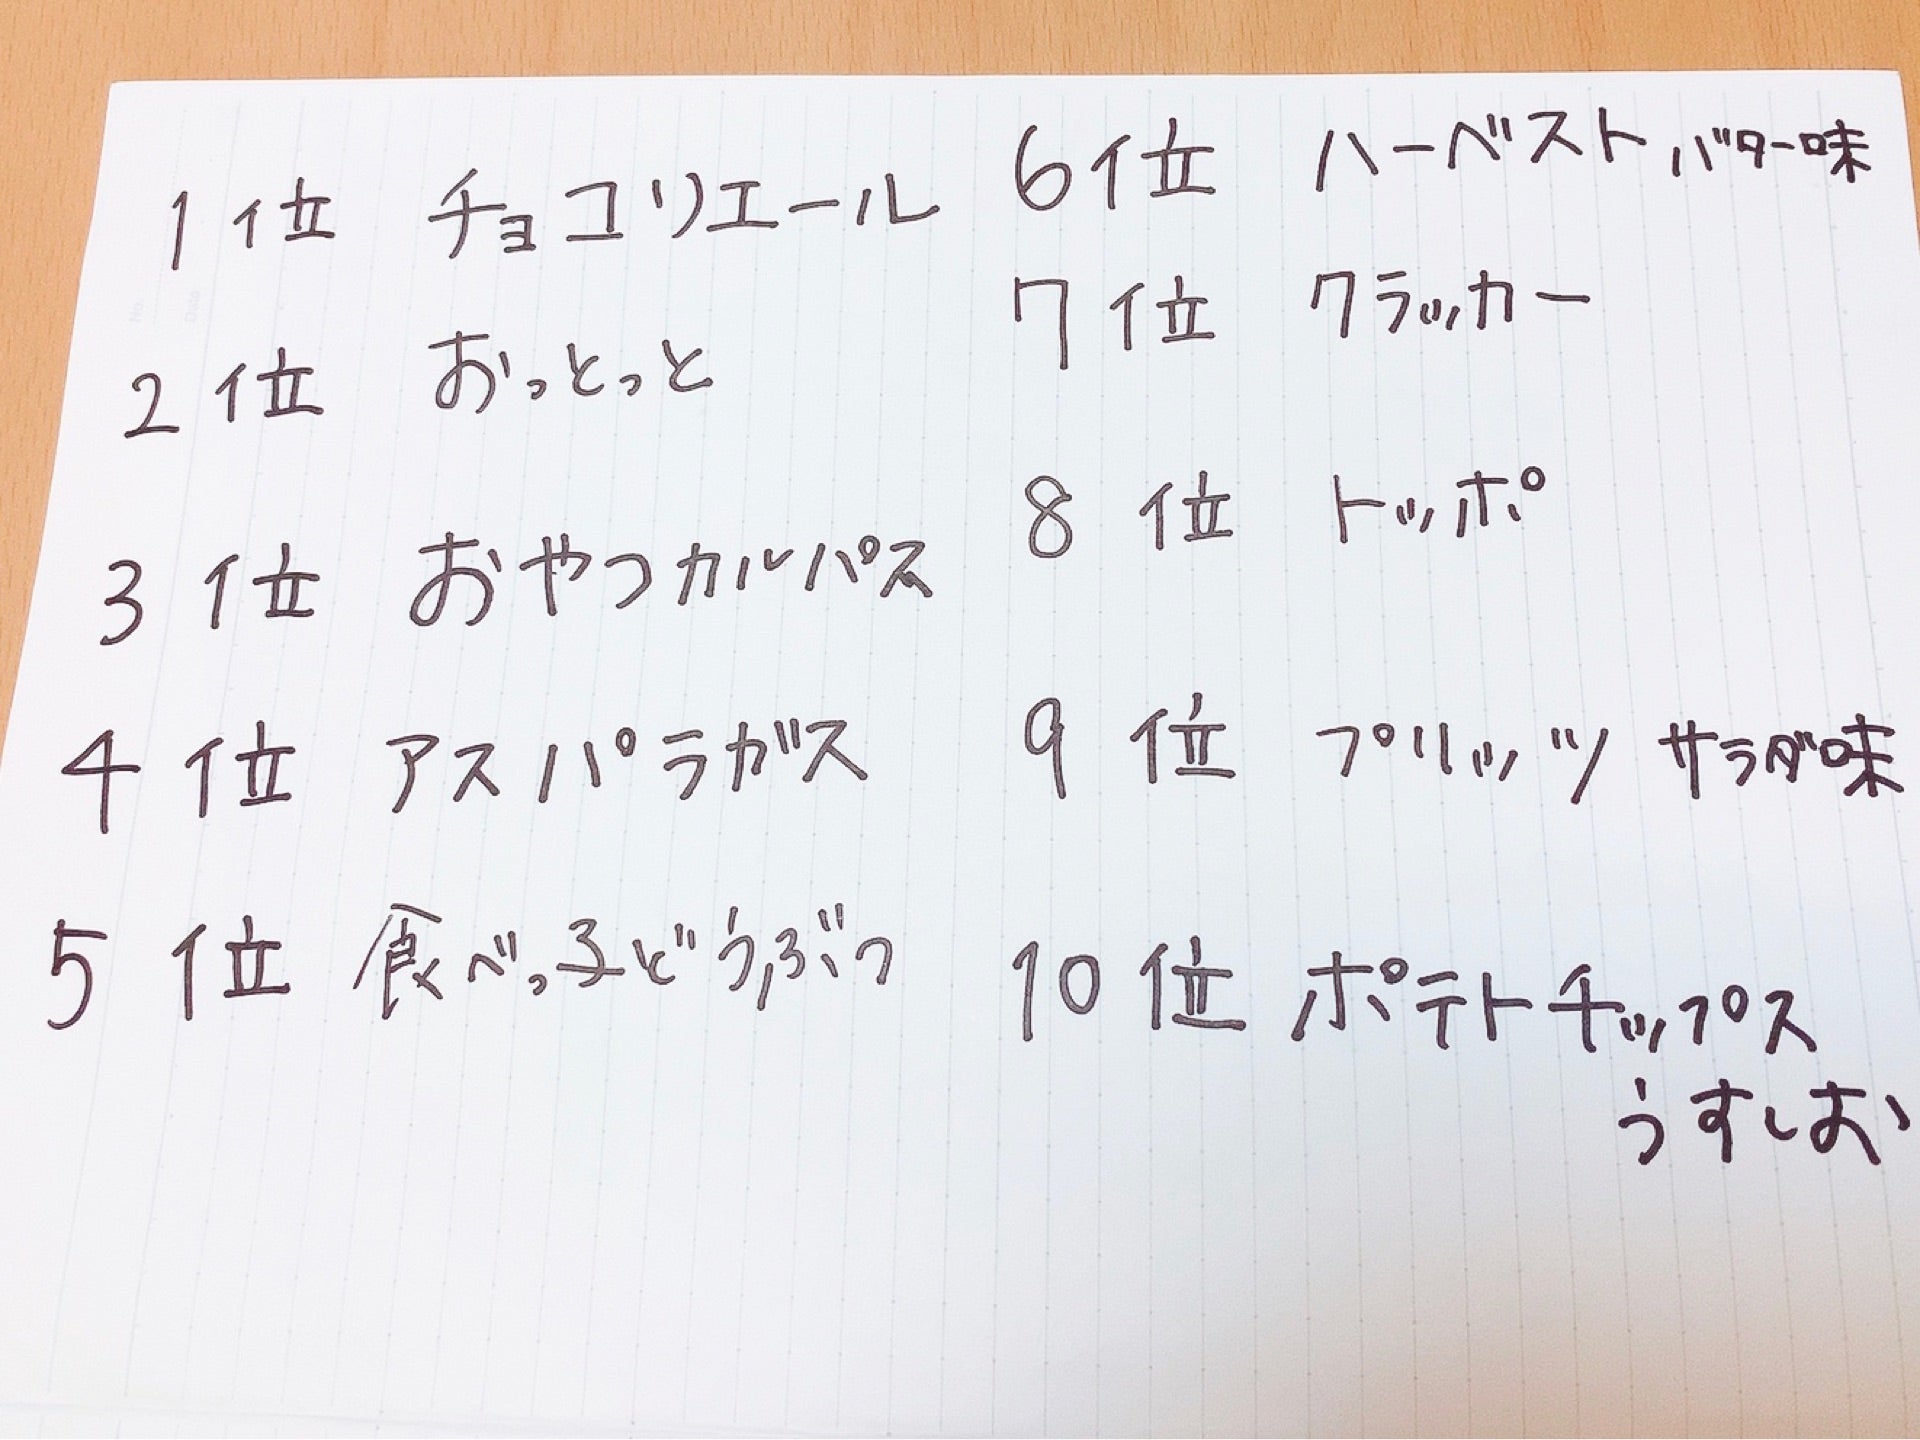 1位 チョコリエール
2位 おっとっと
3位 おやつカルパス
4位 アスパラガス
5位 食べっ子どうぶつ
6位 ハーベスト バター味
7位 クラッカー
8位 トッポ
9位 プリッツ サラダ味
10位 ポテトチップス
うすしお